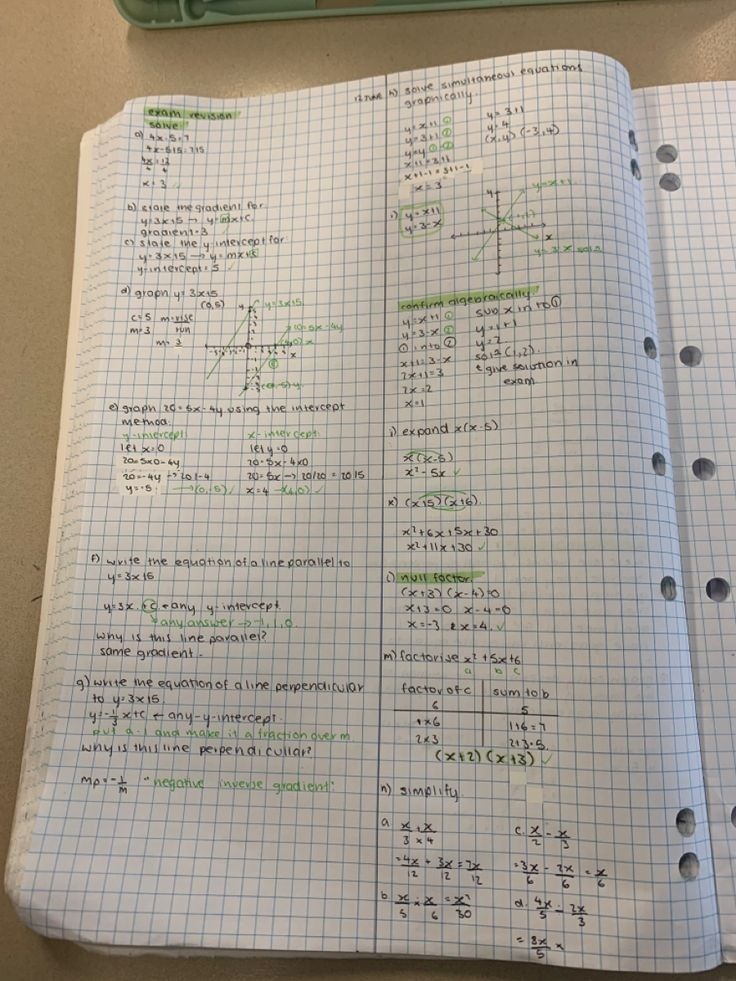 exam revision
solve:
a) 4x-5=7
4x-5+5=7+5
4x=12
4 4
x=3 ✓
b) state the gradient for
y=3x+5 → y=mx+c
gradient=3
c) state the y-intercept for
y=3x+5 → y=mx+c
y-intercept=5 ✓
d) graph y=3x+5
(0,5)
y
y=3x+5
c=5 m=rise
m=3 run
m=3
20=5x-4y
x
(0,-5)
e) graph 20=5x-4y using the intercept
method.
y-intercept: x-intercept:
let x=0 let y=0
20=5x0-4y 20=5x-4x0
20=-4y → 20/-4 20=5x → 20/20=20/5
y=-5 → (0,-5) ✓ x=4 → (4,0) ✓
f) write the equation of a line parallel to
y=3x+5
y=3x +c ← any y-intercept.
any answer → -1, 1, 0.
why is this line parallel?
same gradient.
g) write the equation of a line perpendicular
to y=3x+5
y=-1/3x+c ← any-y-intercept.
put a -1 and make it a fraction over m
why is this line perpendicular?
mp=-1/m "negative inverse gradient"
h) solve simultaneous equations
graphically.
y=x+1 ① y=3+1
y=3+1 ② y=4
y=y ①=② (x,y) (-3,4)
x+1=3+1
x+1-1=3+1-1
x=3
i) y=x+1
y=3-x
y
y=x+1
x
y=3-x
confirm algebraically
y=x+1 ① sub x into ①
y=3-x ② y=1+1
① into ② y=2
x+1=3-x sol= (1,2).
2x+1=3 give solution in
2x=2 exam
x=1
j) expand x(x-5)
x(x-5)
x²-5x ✓
k) (x+5)(x+6)
x²+6x+5x+30
x²+11x+30 ✓
l) null factor.
(x+3)(x-4)=0
x+3=0 x-4=0
x=-3 & x=4 ✓
m) factorise x²+5x+6
a b c
factor of c sum to b
6 5
1x6 1+6=7
2x3 2+3=5
(x+2)(x+3) ✓
n) simplify
a x/3 + x/4
=4x/12 + 3x/12 = 7x/12
b x/5 × x/6 = x²/30
c. x/2 - x/3
=3x/6 - 2x/6 = x/6
d. 4x/5 ÷ 2x/3
=8x/5 ×